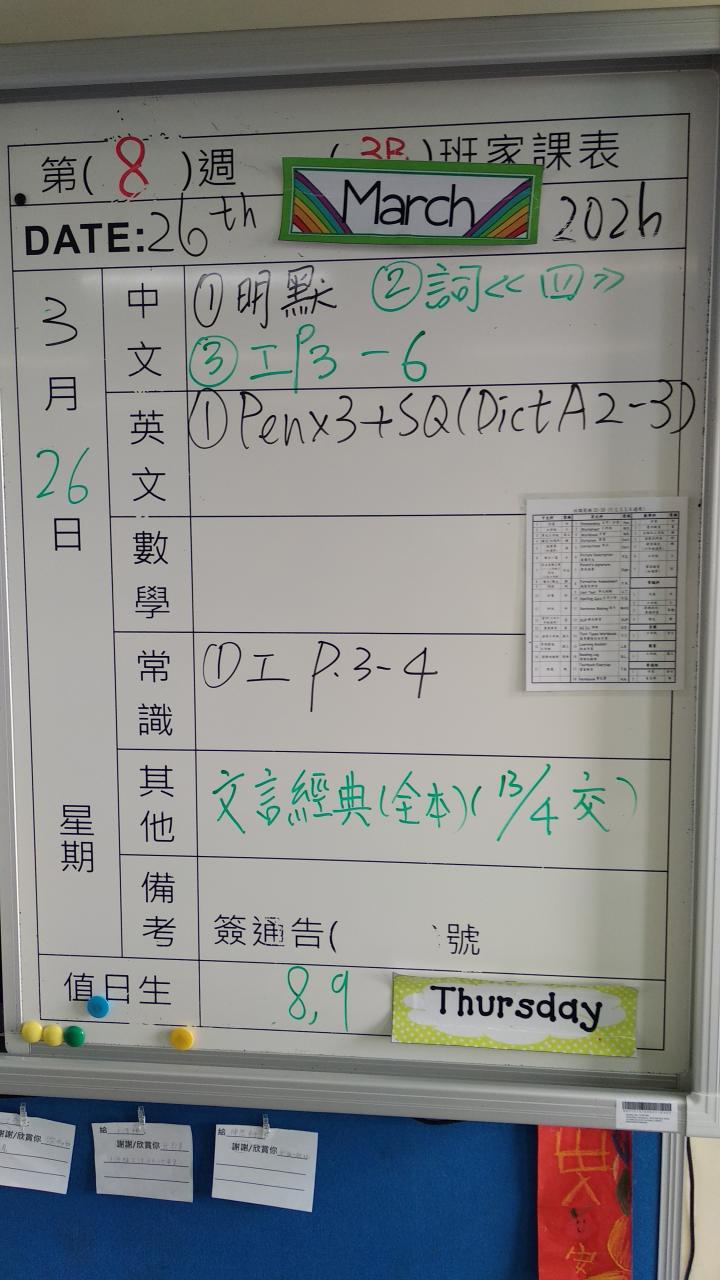 第( 8 )週 ( 3B )班家課表
DATE: 26th March 2026
3月26日 星期
中文 ①明默 ②詞<<四>>
③工P3-6
英文 ①Penx3+SQ(Dict A2-3)
數學
常識 ①工 P.3-4
其他 文言經典(全本)(13/4 交)
備考 簽通告( )號
值日生 8,9 Thursday
給
謝謝/欣賞你
給
謝謝/欣賞你
給
謝謝/欣賞你
安